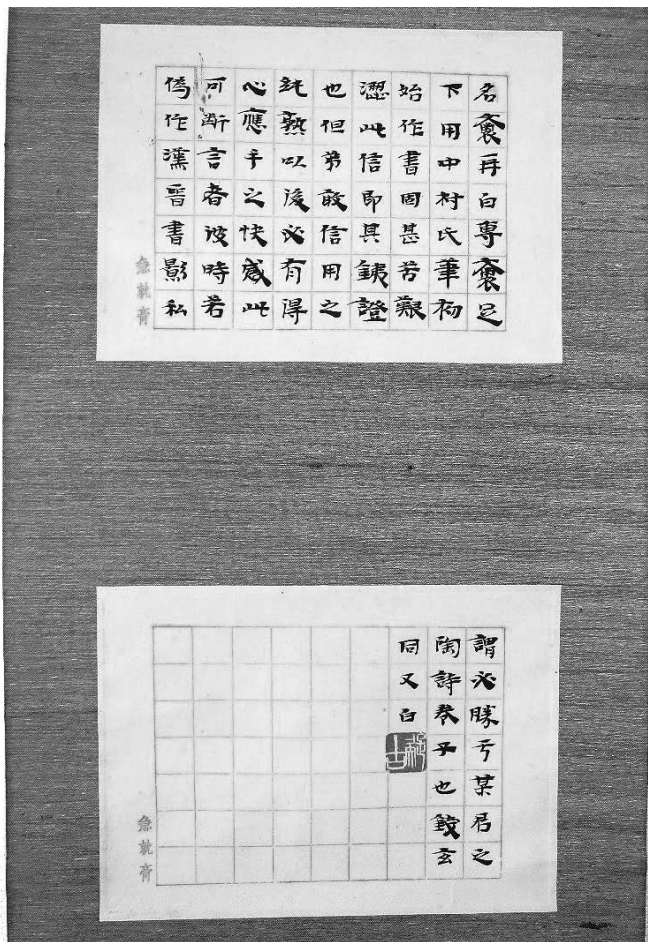 名褱再白專褱足
下用中村氏筆初
始作書固甚苦艱
澀此信即其銕證
也但弟敢信用之
純熟以後必有得
心應手之快感此
可斷言者彼時若
僞作漢晉書影私
急就廎
謂必勝亏某君之
陶詩卷子也錢玄
同又白
疑古
急就廎